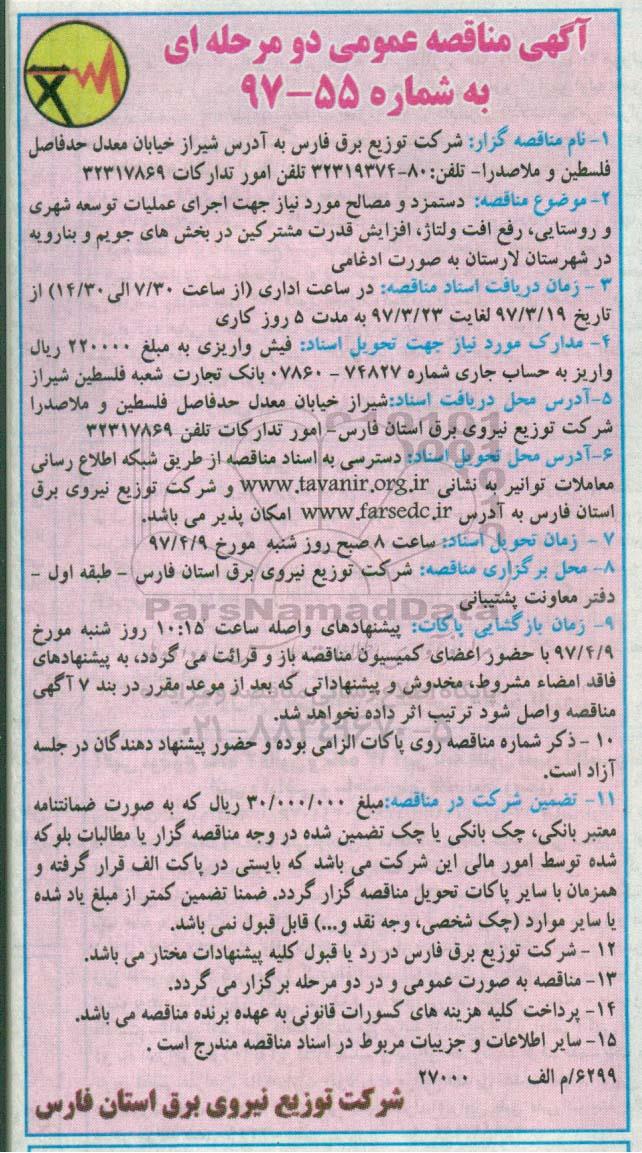 آگهی مناقصه عمومی دو مرحله ای
به شماره ۵۵-۹۷
۱- نام مناقصه گزار: شرکت توزیع برق فارس به آدرس شیراز خیابان معدل حدفاصل
فلسطین و ملاصدرا- تلفن:۸۰-۳۲۳۱۹۳۷۴ تلفن امور تدارکات ۳۲۳۱۷۸۶۹
۲- موضوع مناقصه: دستمزد و مصالح مورد نیاز جهت اجرای عملیات توسعه شهری
و روستایی، رفع افت ولتاژ، افزایش قدرت مشترکین در بخش های جویم و بنارویه
در شهرستان لارستان به صورت ادغامی
۳ - زمان دریافت اسناد مناقصه: در ساعت اداری (از ساعت ۷/۳۰ الی۱۴/۳۰) از
تاریخ ۹۷/۳/۱۹ لغایت ۹۷/۳/۲۳ به مدت ۵ روز کاری
۴- مدارک مورد نیاز جهت تحویل اسناد: فیش واریزی به مبلغ ۲۲۰۰۰۰ ریال
واریز به حساب جاری شماره ۷۴۸۲۷ - ۰۷۸۶۰ بانک تجارت شعبه فلسطین شیراز
۵-آدرس محل دریافت اسناد:شیراز خیابان معدل حدفاصل فلسطین و ملاصدرا
شرکت توزیع نیروی برق استان فارس- امور تدارکات تلفن ۳۲۳۱۷۸۶۹
۶-آدرس محل تحویل اسناد: دسترسی به اسناد مناقصه از طریق شبکه اطلاع رسانی
معاملات توانیر به نشانی www.tavanir.org.ir و شرکت توزیع نیروی برق
استان فارس به آدرس www.farsedc.ir امکان پذیر می باشد.
۷ - زمان تحویل اسناد: ساعت ۸ صبح روز شنبه مورخ ۹۷/۴/۹
۸- محل برگزاری مناقصه: شرکت توزیع نیروی برق استان فارس - طبقه اول -
دفتر معاونت پشتیبانی
ParsNamadData
۹- زمان بازگشایی پاکات: پیشنهادهای واصله ساعت ۱۰:۱۵ روز شنبه مورخ
۹۷/۴/۹ با حضور اعضای کمیسیون مناقصه باز و قرائت می گردد، به پیشنهادهای
فاقد امضاء مشروط، مخدوش و پیشنهاداتی که بعد از موعد مقرر در بند ۷ آگهی
مناقصه واصل شود ترتیب اثر داده نخواهد شد.
۱۰ - ذکر شماره مناقصه روی پاکات الزامی بوده و حضور پیشنهاد دهندگان در جلسه
آزاد است.
۱۱- تضمین شرکت در مناقصه:مبلغ ۳۰/۰۰۰/۰۰۰ ریال که به صورت ضمانتنامه
معتبر بانکی، چک بانکی یا چک تضمین شده در وجه مناقصه گزار یا مطالبات بلوکه
شده توسط امور مالی این شرکت می باشد که بایستی در پاکت الف قرار گرفته و
همزمان با سایر پاکات تحویل مناقصه گزار گردد. ضمنا تضمین کمتر از مبلغ یاد شده
یا سایر موارد (چک شخصی، وجه نقد و...) قابل قبول نمی باشد.
۱۲ - شرکت توزیع برق فارس در رد یا قبول کلیه پیشنهادات مختار می باشد.
۱۳- مناقصه به صورت عمومی و در دو مرحله برگزار می گردد.
۱۴- پرداخت کلیه هزینه های کسورات قانونی به عهده برنده مناقصه می باشد.
۱۵- سایر اطلاعات و جزییات مربوط در اسناد مناقصه مندرج است .
۶۲۹۹/م الف ۲۷۰۰۰
شرکت توزیع نیروی برق استان فارس